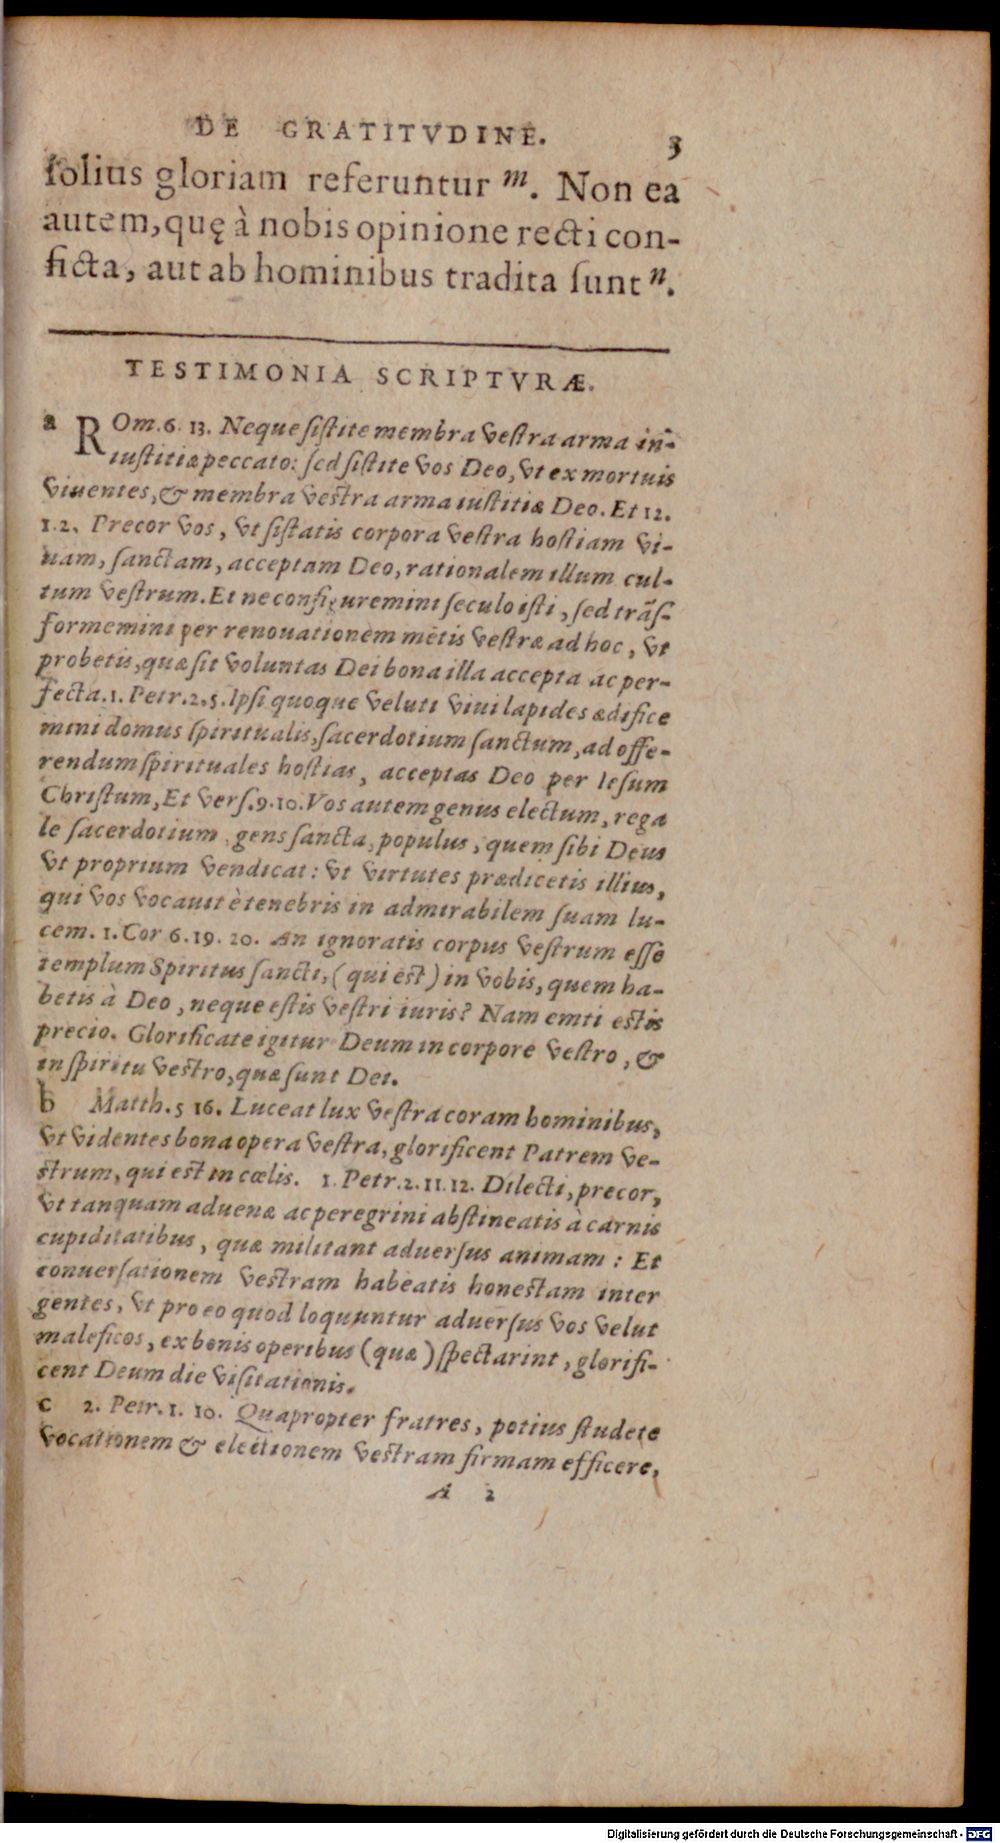 DE GRATITVDINE. 3
ſolius gloriam referuntur m. Non ea
autem, quę à nobis opinione recti con-
ficta, aut ab hominibus tradita ſunt n.
TESTIMONIA SCRIPTVRÆ.
a ROm. 6. 13. Neque ſiſtite membra veſtra arma in-
iuſtitiæ peccato: ſed ſiſtite vos Deo, vt ex mortuis
viuentes, & membra veſtra arma iuſtitiæ Deo. Et 12.
1. 2. Precor vos, vt ſiſtatis corpora veſtra hoſtiam vi-
uam, ſanctam, acceptam Deo, rationalem illum cul-
tum veſtrum. Et ne configuremini ſeculo iſti, ſed trãſ-
formemini per renouationem mẽtis veſtræ ad hoc, vt
probetis, quæ ſit voluntas Dei bona illa accepta ac per-
fecta. 1. Petr. 2. 5. Ipſi quoque veluti viui lapides ædifice
mini domus ſpiritualis, ſacerdotium ſanctum, ad offe-
rendum ſpirituales hoſtias, acceptas Deo per Ieſum
Chriſtum, Et verſ. 9. 10. Vos autem genus electum, rega
le ſacerdotium, gens ſancta, populus, quem ſibi Deus
vt proprium vendicat: vt virtutes prædicetis illius,
qui vos vocauit è tenebris in admirabilem ſuam lu-
cem. 1. Cor 6. 19. 20. An ignoratis corpus veſtrum eſſe
templum Spiritus ſancti, (qui eſt) in vobis, quem ha-
betis à Deo, neque eſtis veſtri iuris? Nam emti eſtis
precio. Glorificate igitur Deum in corpore veſtro, &
in ſpiritu veſtro, quæ ſunt Dei.
b Matth. 5 16. Luceat lux veſtra coram hominibus,
vt videntes bona opera veſtra, glorificent Patrem ve-
ſtrum, qui eſt in cœlis. 1. Petr. 2. 11. 12. Dilecti, precor,
vt tanquam aduenæ ac peregrini abſtineatis à carnis
cupiditatibus, quæ militant aduerſus animam: Et
conuerſationem veſtram habeatis honeſtam inter
gentes, vt pro eo quod loquuntur aduerſus vos velut
maleficos, ex bonis operibus (quæ) ſpectarint, glorifi-
cent Deum die viſitationis.
c 2. Petr. 1. 10. Quapropter fratres, potius ſtudete
vocationem & electionem veſtram firmam efficere,
A 2
Digitalisierung gefördert durch die Deutsche Forschungsgemeinschaft - DFG